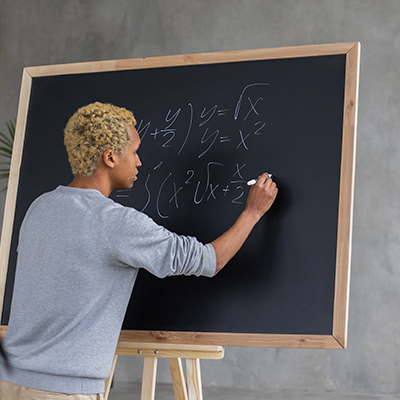 y + y/2) y = √x
y = x²
= ∫(x²√x + x/2